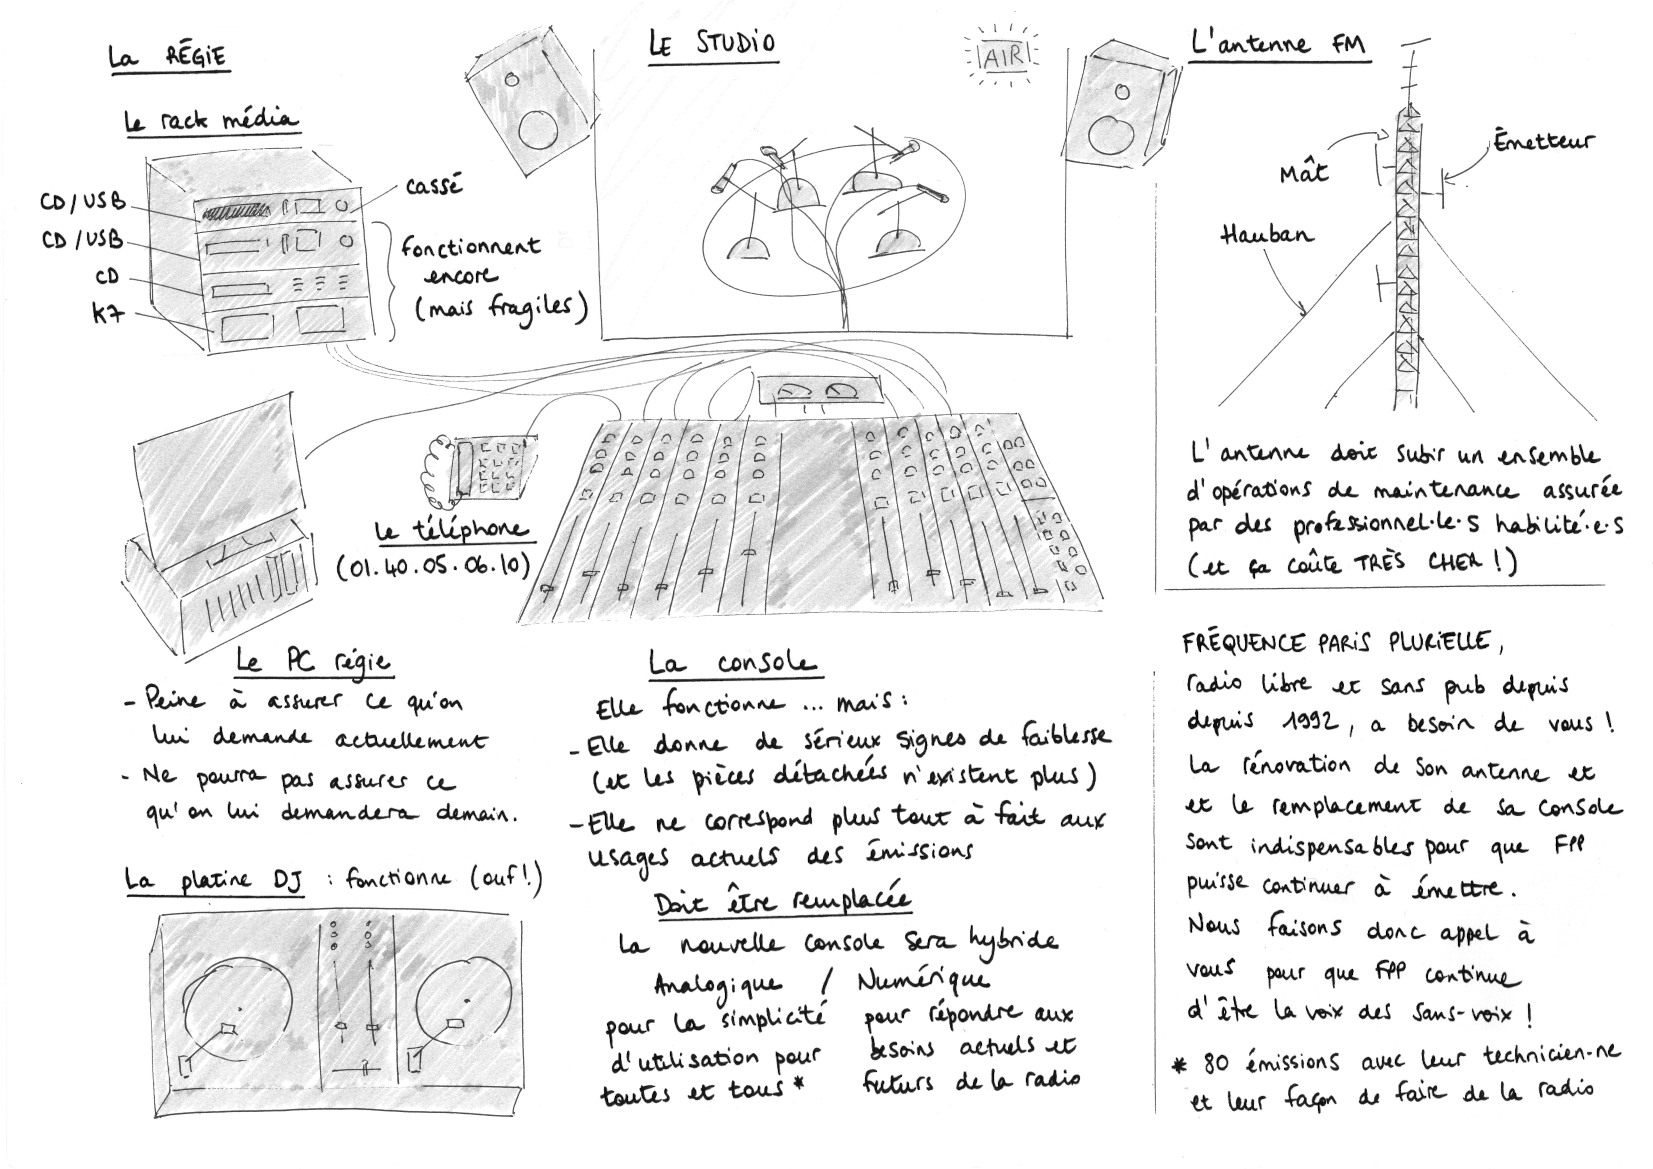 La RÉGIE
Le rack média
CD/USB
CD/USB
CD
K7
cassé
fonctionnent
encore
(mais fragiles)
LE STUDIO
AIR
L'antenne FM
Mât
Émetteur
Hauban
L'antenne doit subir un ensemble
d'opérations de maintenance assurée
par des professionnel·le·s habilité·e·s
(et ça coûte TRÈS CHER !)
Le téléphone
(01.40.05.06.10)
Le PC régie
- Peine à assurer ce qu'on
lui demande actuellement
- Ne pourra pas assurer ce
qu'on lui demandera demain.
La platine DJ : fonctionne (ouf !)
La console
Elle fonctionne ... mais :
- Elle donne de sérieux signes de faiblesse
(et les pièces détachées n'existent plus)
- Elle ne correspond plus tout à fait aux
usages actuels des émissions
Doit être remplacée
La nouvelle console sera hybride
Analogique / Numérique
pour la simplicité
d'utilisation pour
toutes et tous *
pour répondre aux
besoins actuels et
futurs de la radio
FRÉQUENCE PARIS PLURIELLE,
radio libre et sans pub depuis
depuis 1992, a besoin de vous !
La rénovation de son antenne et
et le remplacement de sa console
sont indispensables pour que FPP
puisse continuer à émettre.
Nous faisons donc appel à
vous pour que FPP continue
d'être la voix des sans-voix !
* 80 émissions avec leur technicien-ne
et leur façon de faire de la radio